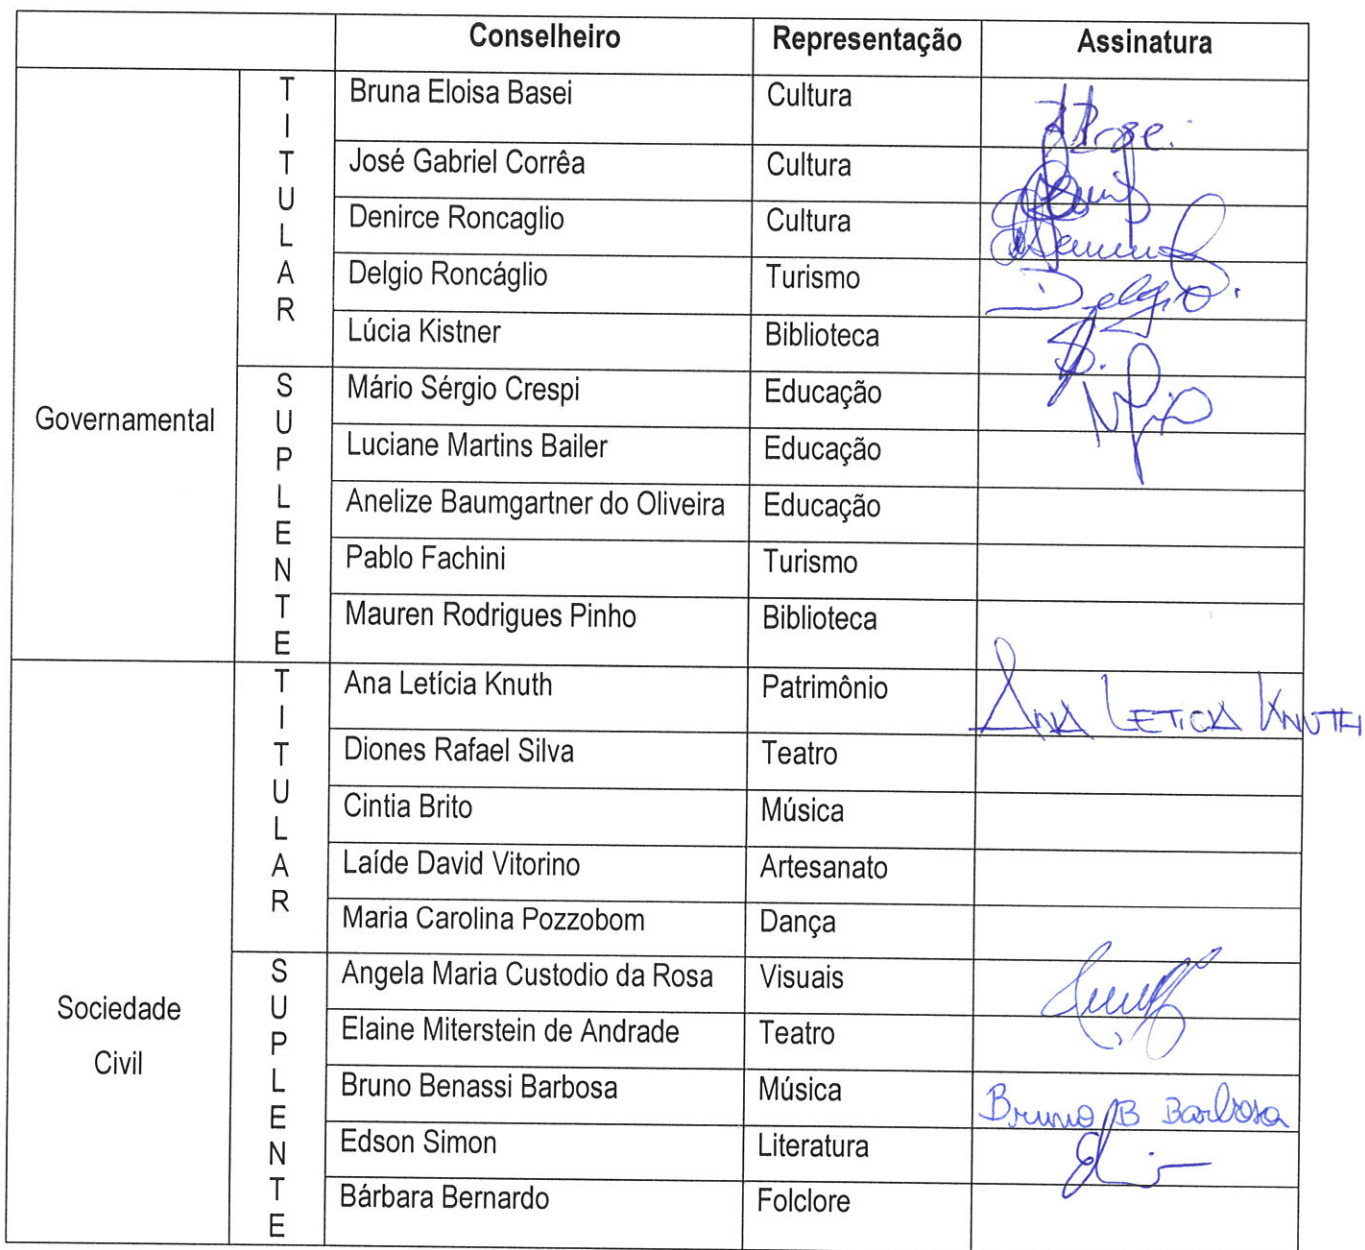 Conselheiro Representação Assinatura
Governamental
TITULAR
Bruna Eloisa Basei Cultura
José Gabriel Corrêa Cultura
Denirce Roncaglio Cultura
Delgio Roncáglio Turismo Delgio.
Lúcia Kistner Biblioteca
SUPLENTE
Mário Sérgio Crespi Educação
Luciane Martins Bailer Educação
Anelize Baumgartner do Oliveira Educação
Pablo Fachini Turismo
Mauren Rodrigues Pinho Biblioteca
Sociedade
Civil
TITULAR
Ana Letícia Knuth Patrimônio ANA LETICIA KNUTH
Diones Rafael Silva Teatro
Cintia Brito Música
Laíde David Vitorino Artesanato
Maria Carolina Pozzobom Dança
SUPLENTE
Angela Maria Custodio da Rosa Visuais
Elaine Miterstein de Andrade Teatro
Bruno Benassi Barbosa Música Bruno B Barbosa
Edson Simon Literatura
Bárbara Bernardo Folclore